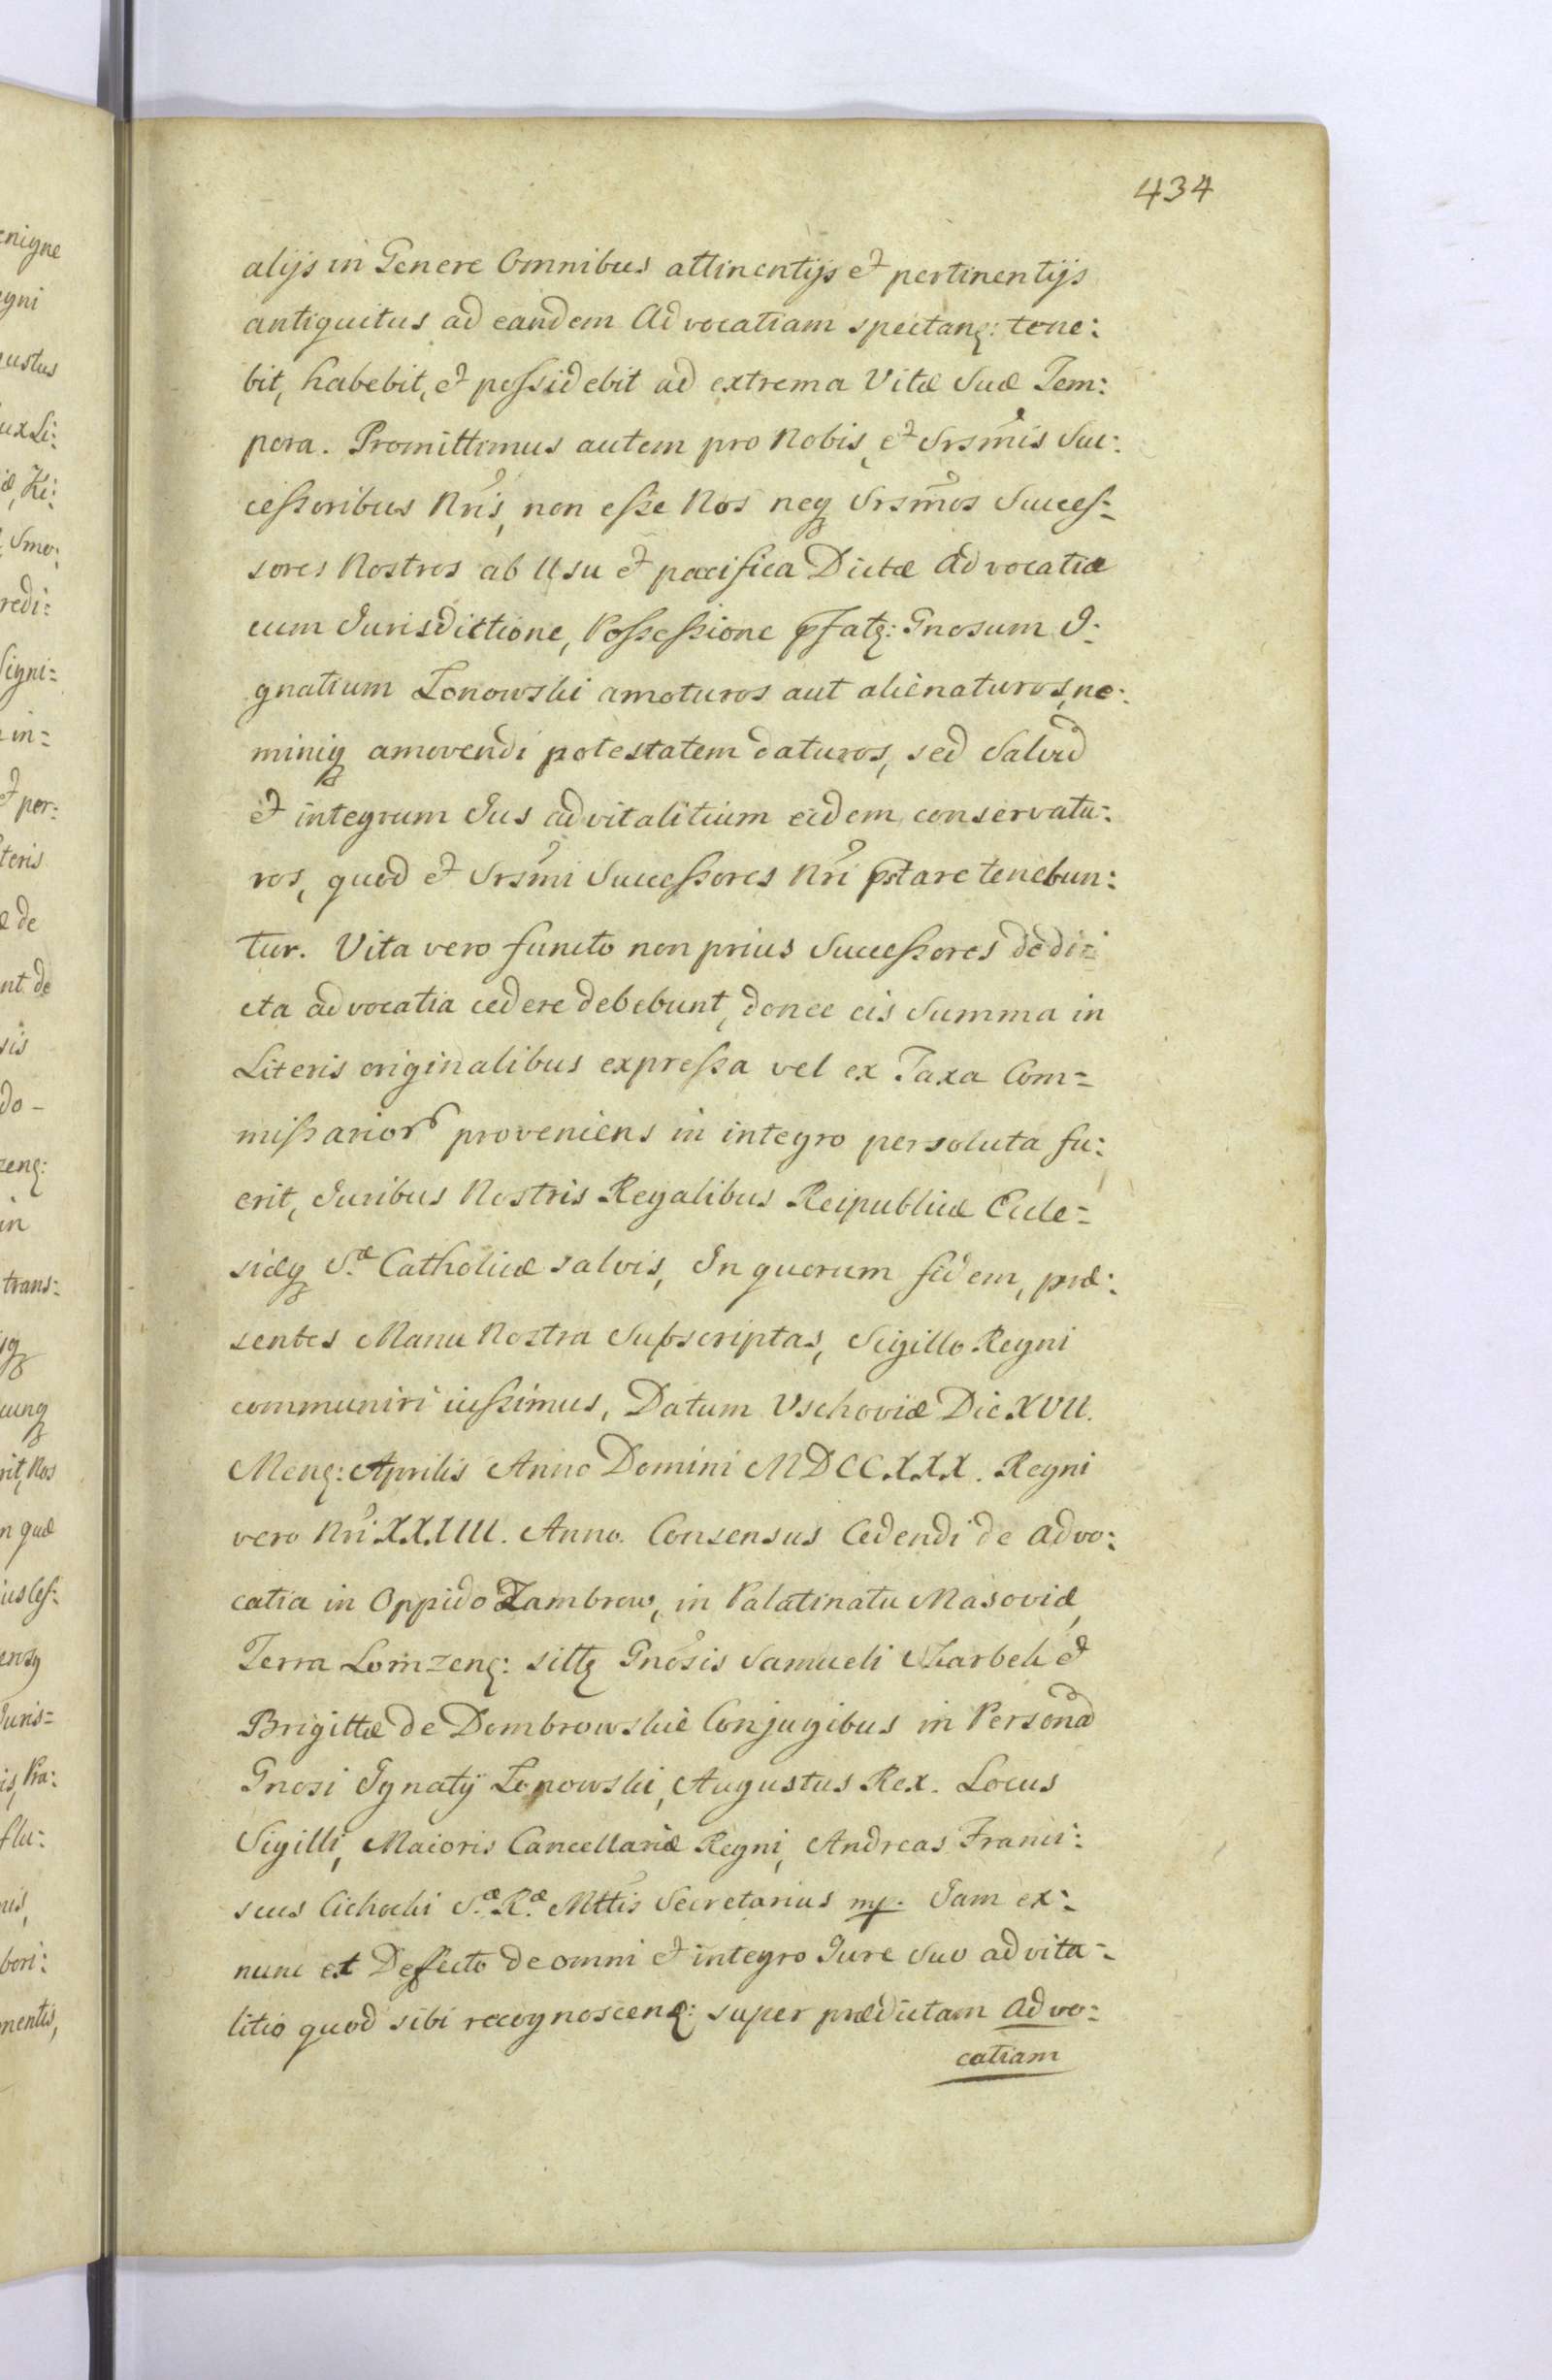 434
alijs in Genere Omnibus attinentijs et pertinentijs
antiquitus ad eandem Advocatiam spectanꝫ: tene:
bit, habebit, et possidebit ad extrema Vitæ Suæ Tem:
pora. Promittimus autem pro Nobis, et Srsmis Suc:
cessoribus Nris, non esse Nos neqꝫ Srsmos Succes=
sores Nostros ab Usu et pacifica Dictæ Advocatiæ
cum Jurisdictione, Possessione pfatꝫ: Gnosum I:
gnatium Lonowski amoturos aut alienaturos, ne:
miniqꝫ amovendi potestatem daturos, sed Salvũ
et integrum Jus advitalitium eidem conservatu:
ros, quod et Srsmi Successores Nri pstare tenebun:
tur. Vita vero functo non prius Successores de di=
cta advocatia cedere debebunt, donec eis Summa in
Literis originalibus expressa vel ex Taxa Com=
missarior proveniens in integro persoluta fu:
erit, Juribus Nostris Regalibus Reipublicæ Eccle=
siæqꝫ S.æ Catholicæ salvis, In quorum fidem, præ:
sentes Manu Nostra Subscriptas, Sigillo Regni
communiri iussimus, Datum Vschoviæ Die XVII.
Menꝫ: Aprilis Anno Domini MDCCXXX. Regni
vero Nri XXXIII. Anno. Consensus Cedendi de advo:
catia in Oppido Zambrow, in Palatinatu Masoviæ,
Terra Lomzenꝫ: sittꝫ Gnosis Samueli Skarbek et
Brigittæ de Dombrowskie Conjugibus in Personã
Gnosi Ignatÿ Lonowski, Augustus Rex. Locus
Sigilli, Maioris Cancellariæ Regni, Andreas Franci:
scus Cichocki S.æ R.æ Mttis Secretarius mp. Jam ex:
nunc et Deffecto de omni et integro Jure Suo advita=
litio quod sibi recognoscenꝫ: super prædictam advo:
catiam